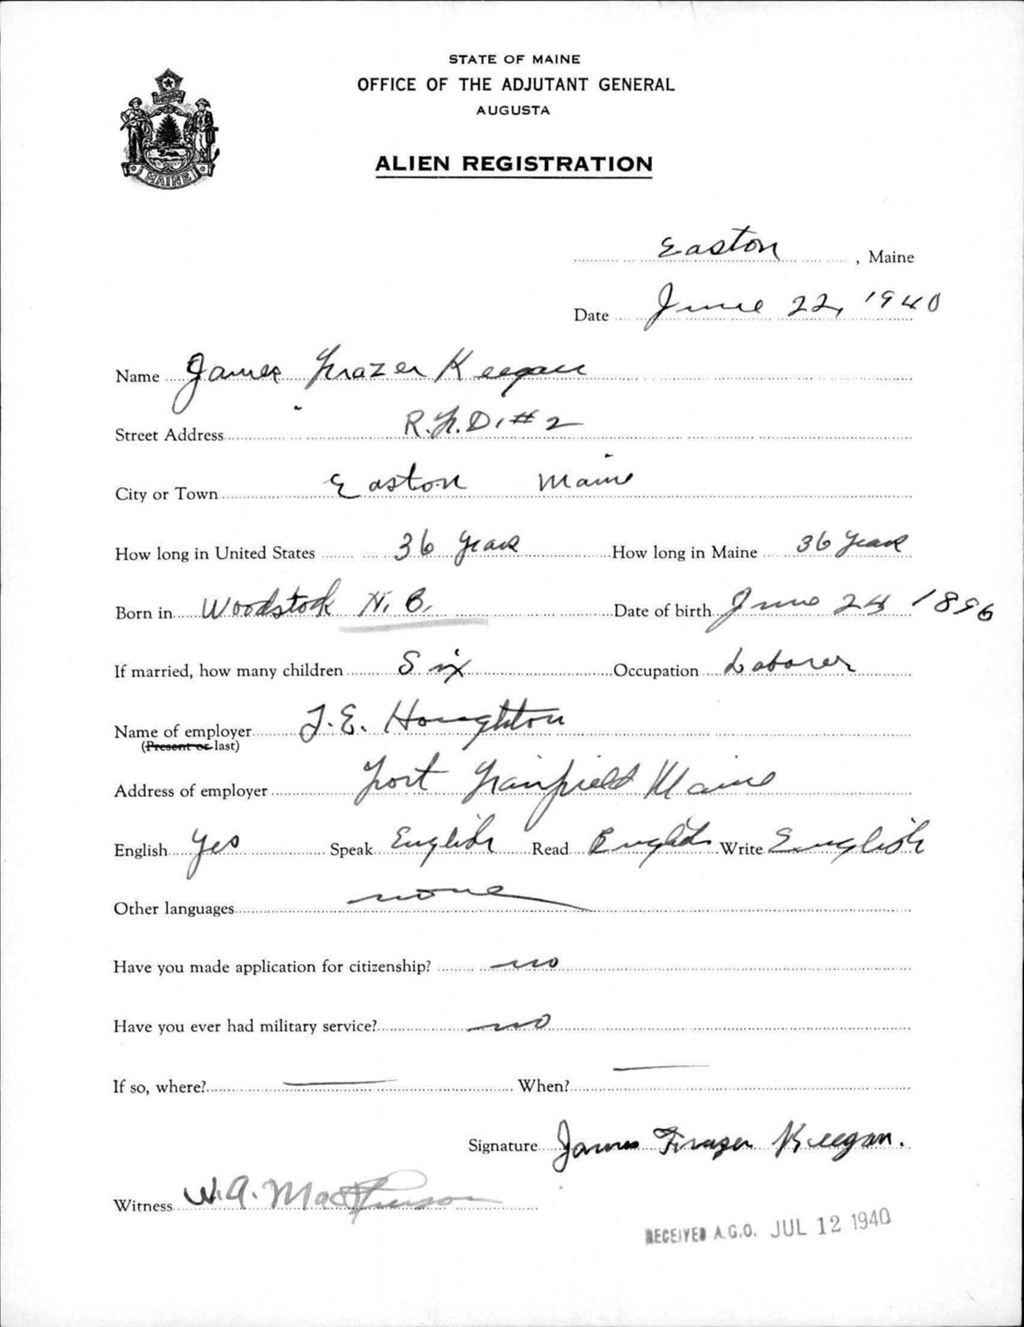 STATE OF MAINE
OFFICE OF THE ADJUTANT GENERAL
AUGUSTA
ALIEN REGISTRATION
MAINE
Easton, Maine
Date June 22, 1940
Name James Frazer Keegan
Street Address R.F.D. #2
City or Town Easton Maine
How long in United States 36 years How long in Maine 36 years
Born in Woodstock N.B. Date of birth June 24 1896
If married, how many children Six Occupation Laborer
Name of employer J.E. Houghton
(Present or last)
Address of employer Fort Fairfield Maine
English Yes Speak English Read English Write English
Other languages none
Have you made application for citizenship? no
Have you ever had military service? no
If so, where? — When? —
Signature James Frazer Keegan.
Witness W.A. MacPherson
RECEIVED A.G.O. JUL 12 1940